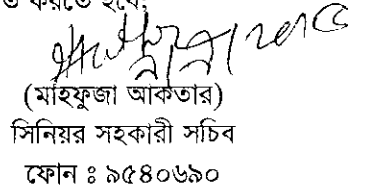 করতে হবে।
(মাহফুজা আকতার)
সিনিয়র সহকারী সচিব
ফোন ঃ ৯৫৪০৬৯০